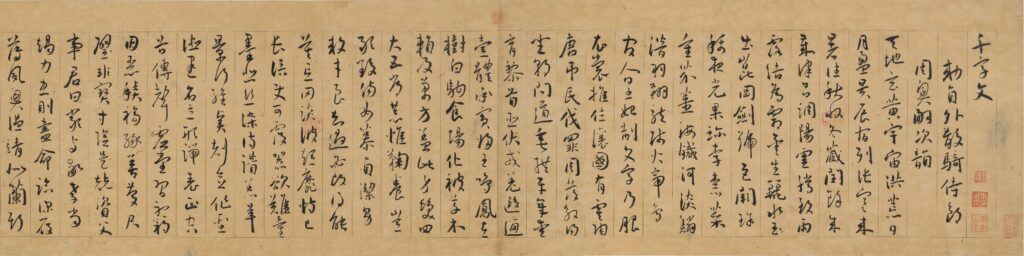 千字文
勅員外散騎侍郎
周興嗣次韻
天地玄黃宇宙洪荒日
月盈昃辰宿列張寒來
暑往秋收冬藏閏餘成
歲律呂調陽雲騰致雨
露結為霜金生麗水玉
出崑岡劍號巨闕珠
稱夜光果珍李柰菜
重芥薑海鹹河淡鱗
潛羽翔龍師火帝鳥
官人皇始制文字乃服
衣裳推位讓國有虞陶
唐弔民伐罪周發殷湯
坐朝問道垂拱平章愛
育黎首臣伏戎羌遐邇
壹體率賓歸王鳴鳳在
樹白駒食場化被草木
賴及萬方蓋此身髮四
大五常恭惟鞠養豈
敢毀傷女慕貞潔男
效才良知過必改得能
莫忘罔談彼短靡恃己
長信使可覆器欲難量
墨悲絲染詩讚羔羊
景行維賢剋念作聖
德建名立形端表正空
谷傳聲虛堂習聽禍
因惡積福緣善慶尺
璧非寶寸陰是競資父
事君曰嚴與敬孝當
竭力忠則盡命臨深履
薄夙興溫凊似蘭斯